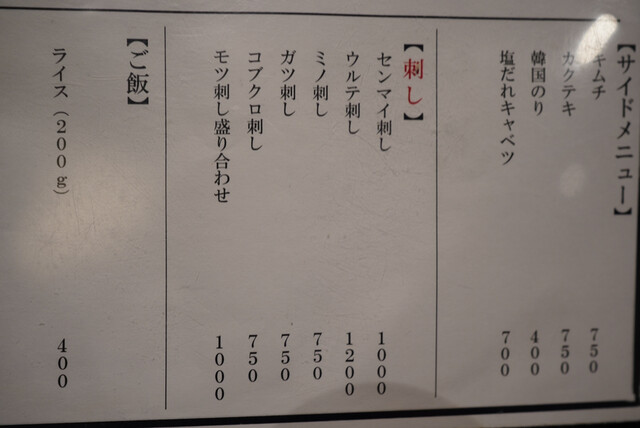 【サイドメニュー】
キムチ 750
カクテキ 750
韓国のり 400
塩だれキャベツ 700
【刺し】
センマイ刺し 1000
ウルテ刺し 1200
ミノ刺し 750
ガツ刺し 750
コブクロ刺し 750
モツ刺し盛り合わせ 1000
【ご飯】
ライス（200g） 400